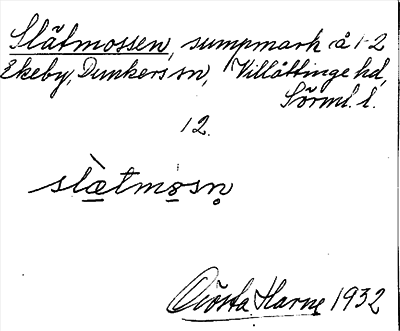 Slätmossen, sumpmark å 1-2
Ekeby, Dunkers sn, Villåttinge hd,
Sörml. l.
12.
slætmosn̥
Gösta Harne 1932